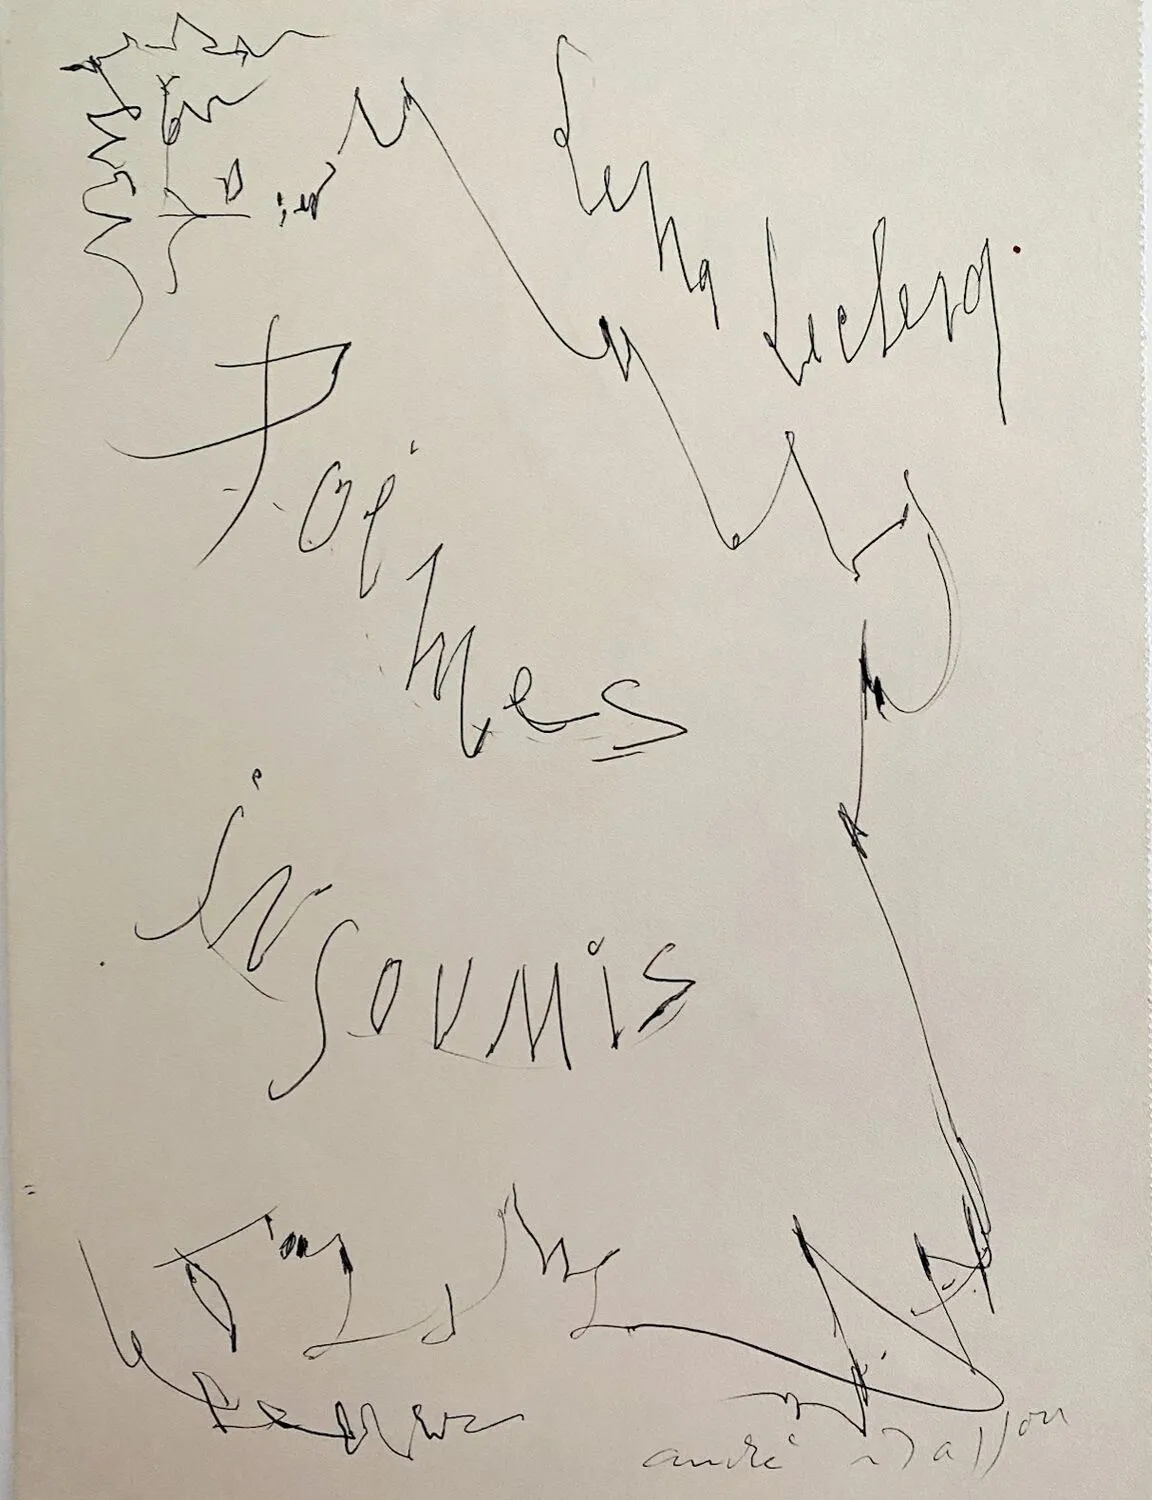 Léna Leclercq.
Poèmes
inSOUMIS
andré Masson